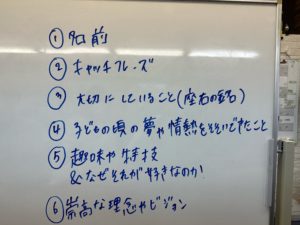 ① 名前
② キャッチフレーズ
③ 大切にしていること(座右の銘)
④ 子どもの頃の夢や情熱をそそいできたこと
⑤ 趣味や特技
&なぜそれが好きなのか
⑥ 崇高な理念やビジョン